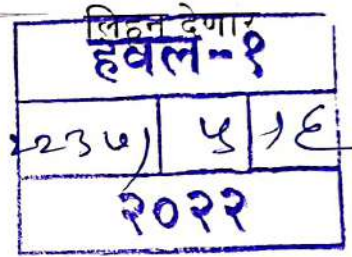 लिहून देणार
हवल-१
५ १६
२०२२